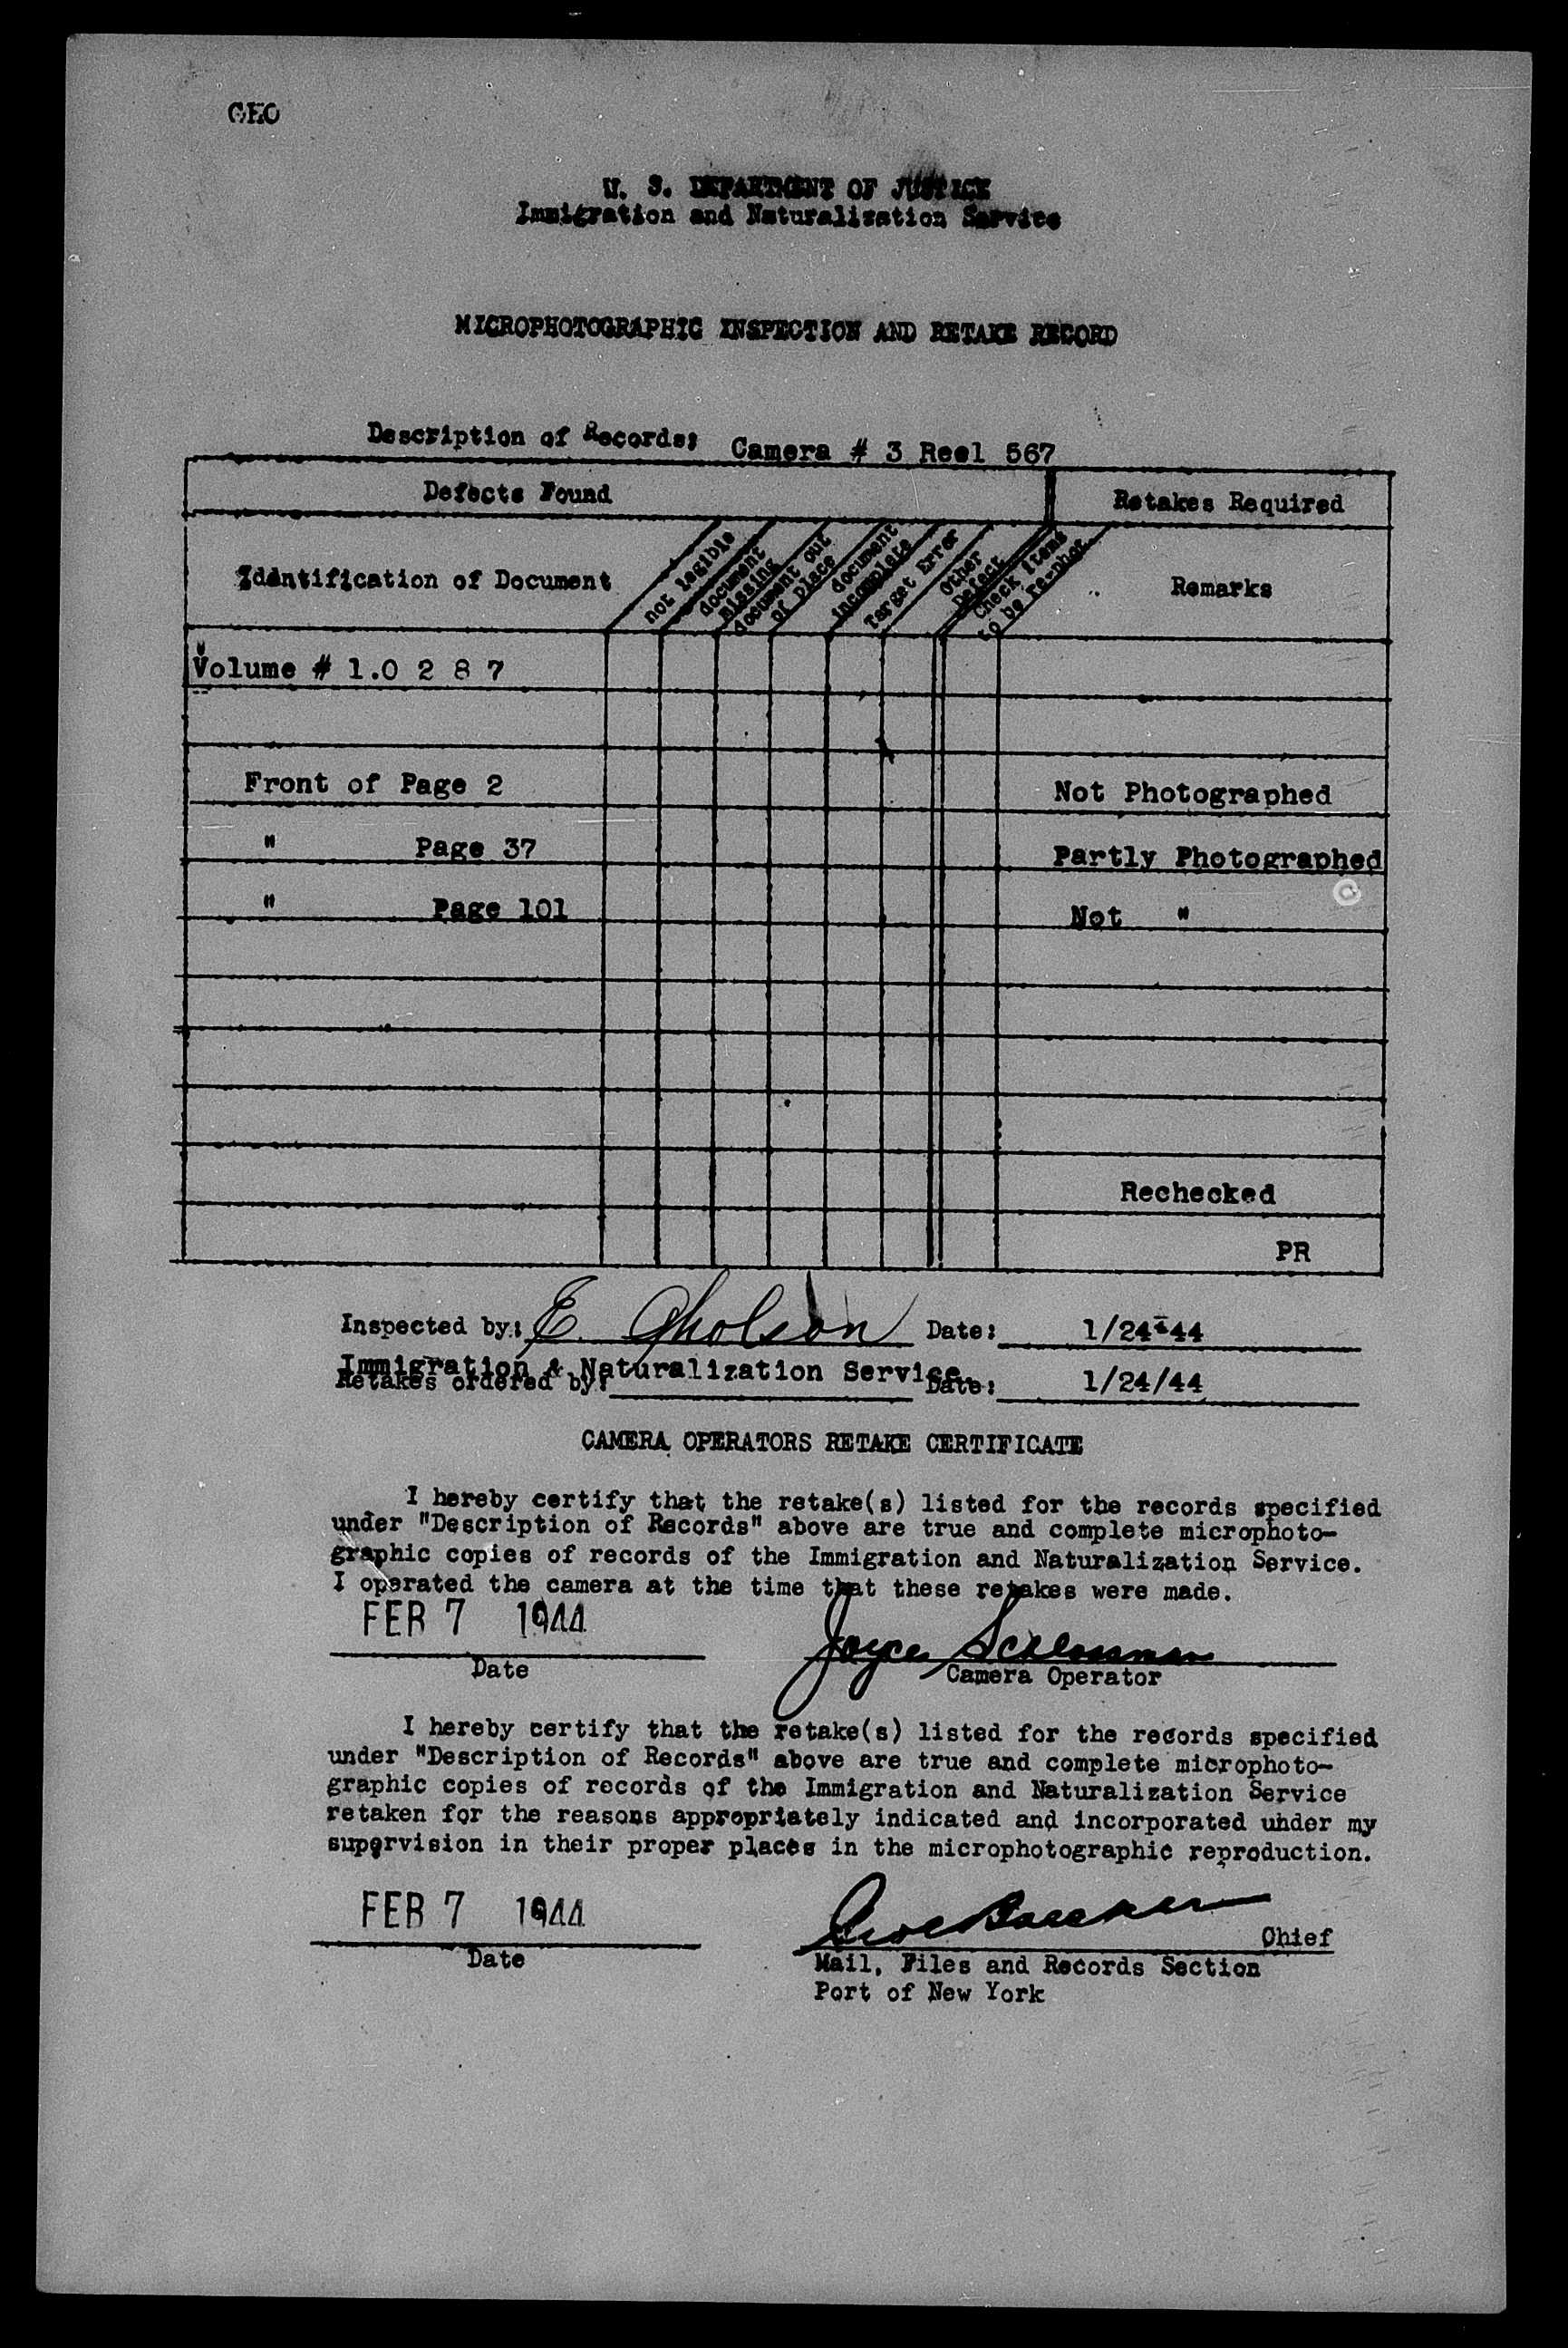 GEO
U. S. DEPARTMENT OF JUSTICE
Immigration and Naturalization Service
MICROPHOTOGRAPHIC INSPECTION AND RETAKE RECORD
Description of Records: Camera # 3 Reel 567
Defects Found Retakes Required
Identification of Document
not legible
document missing
document out of place
document incomplete
Target Error
Other Defect
Check items to be re-phot.
Remarks
Volume # 1.0 2 8 7
Front of Page 2 Not Photographed
" Page 37 Partly Photographed
" Page 101 Not "
Rechecked
PR
Inspected by: E. Gholson Date: 1/24-44
Immigration & Naturalization Service.
Retakes ordered by: Date: 1/24/44
CAMERA OPERATORS RETAKE CERTIFICATE
I hereby certify that the retake(s) listed for the records specified
under "Description of Records" above are true and complete microphoto-
graphic copies of records of the Immigration and Naturalization Service.
I operated the camera at the time that these retakes were made.
FEB 7 1944 Joyce
Date Camera Operator
I hereby certify that the retake(s) listed for the records specified
under "Description of Records" above are true and complete microphoto-
graphic copies of records of the Immigration and Naturalization Service
retaken for the reasons appropriately indicated and incorporated under my
supervision in their proper places in the microphotographic reproduction.
FEB 7 1944 Chief
Date Mail, Files and Records Section
Port of New York